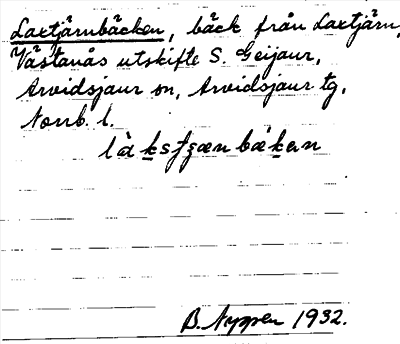 Laxtjärnbäcken, bäck från Laxtjärn,
Västanås utskifte S. Geijaur,
Arvidsjaur sn, Arvidsjaur tg,
Norrb. l.
B. Nyssen 1932.